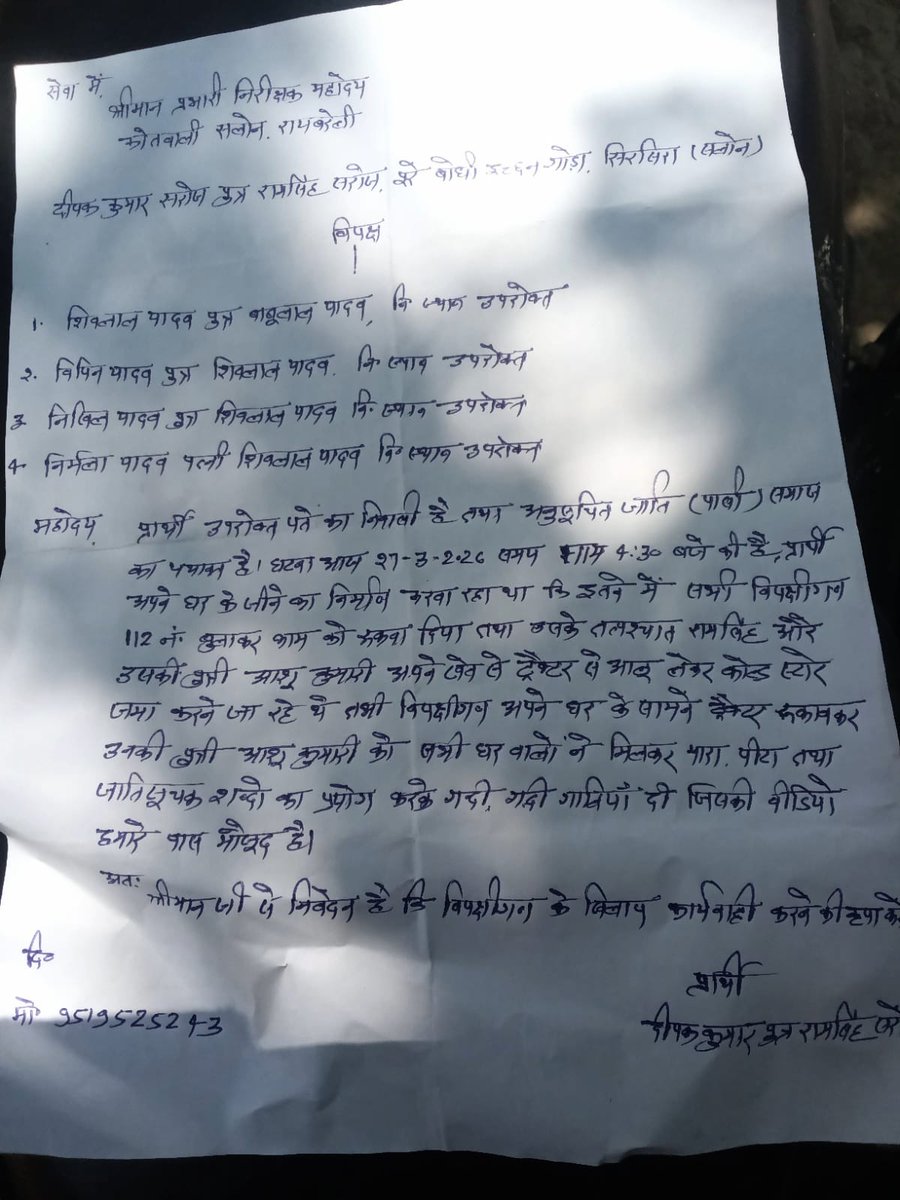 सेवा में,
श्रीमान प्रभारी निरीक्षक महोदय
कोतवाली सलोन, रायबरेली
दीपक कुमार सरोज पुत्र रामसिंह सरोज, पूरे बोधी गोड़ा, सिरसिरा (सलोन)
विपक्ष
1. शिवलाल यादव पुत्र बाबूलाल यादव, नि॰ स्थान उपरोक्त
2. विपिन यादव पुत्र शिवलाल यादव, नि॰ स्थान उपरोक्त
3 निखिल यादव पुत्र शिवलाल यादव नि॰ स्थान उपरोक्त
4 निर्मला यादव पत्नी शिवलाल यादव नि॰ स्थान उपरोक्त
महोदय, प्रार्थी उपरोक्त पते का निवासी है तथा अनुसूचित जाति (पासी) समाज
का है। घटना आज 27-3-2026 समय शाम 4:30 बजे की है, प्रार्थी
अपने घर के जीने का निर्माण करवा रहा था कि इतने में सभी विपक्षीगन
112 नं॰ बुलाकर काम को रुकवा दिया तथा उसके तत्पश्चात रामसिंह और
उसकी पुत्री आशू कुमारी अपने खेत से ट्रैक्टर से आलू लेकर कोल्ड स्टोर
जमा करने जा रहे थे तभी विपक्षीगन अपने घर के सामने ट्रैक्टर रुकवाकर
उनकी पुत्री आशू कुमारी को सभी घर वालो ने मिलकर मारा, पीटा तथा
जातिसूचक शब्दो का प्रयोग करके गदी, गदी गालियाँ दी जिसकी वीडियो
हमारे पास मौजूद है।
अतः श्रीमान जी से निवेदन है कि विपक्षीगन के खिलाप कार्यवाही करने की कृपा करें
दि॰
प्रार्थी
मो॰ 9519525243
दीपक कुमार पुत्र रामसिंह